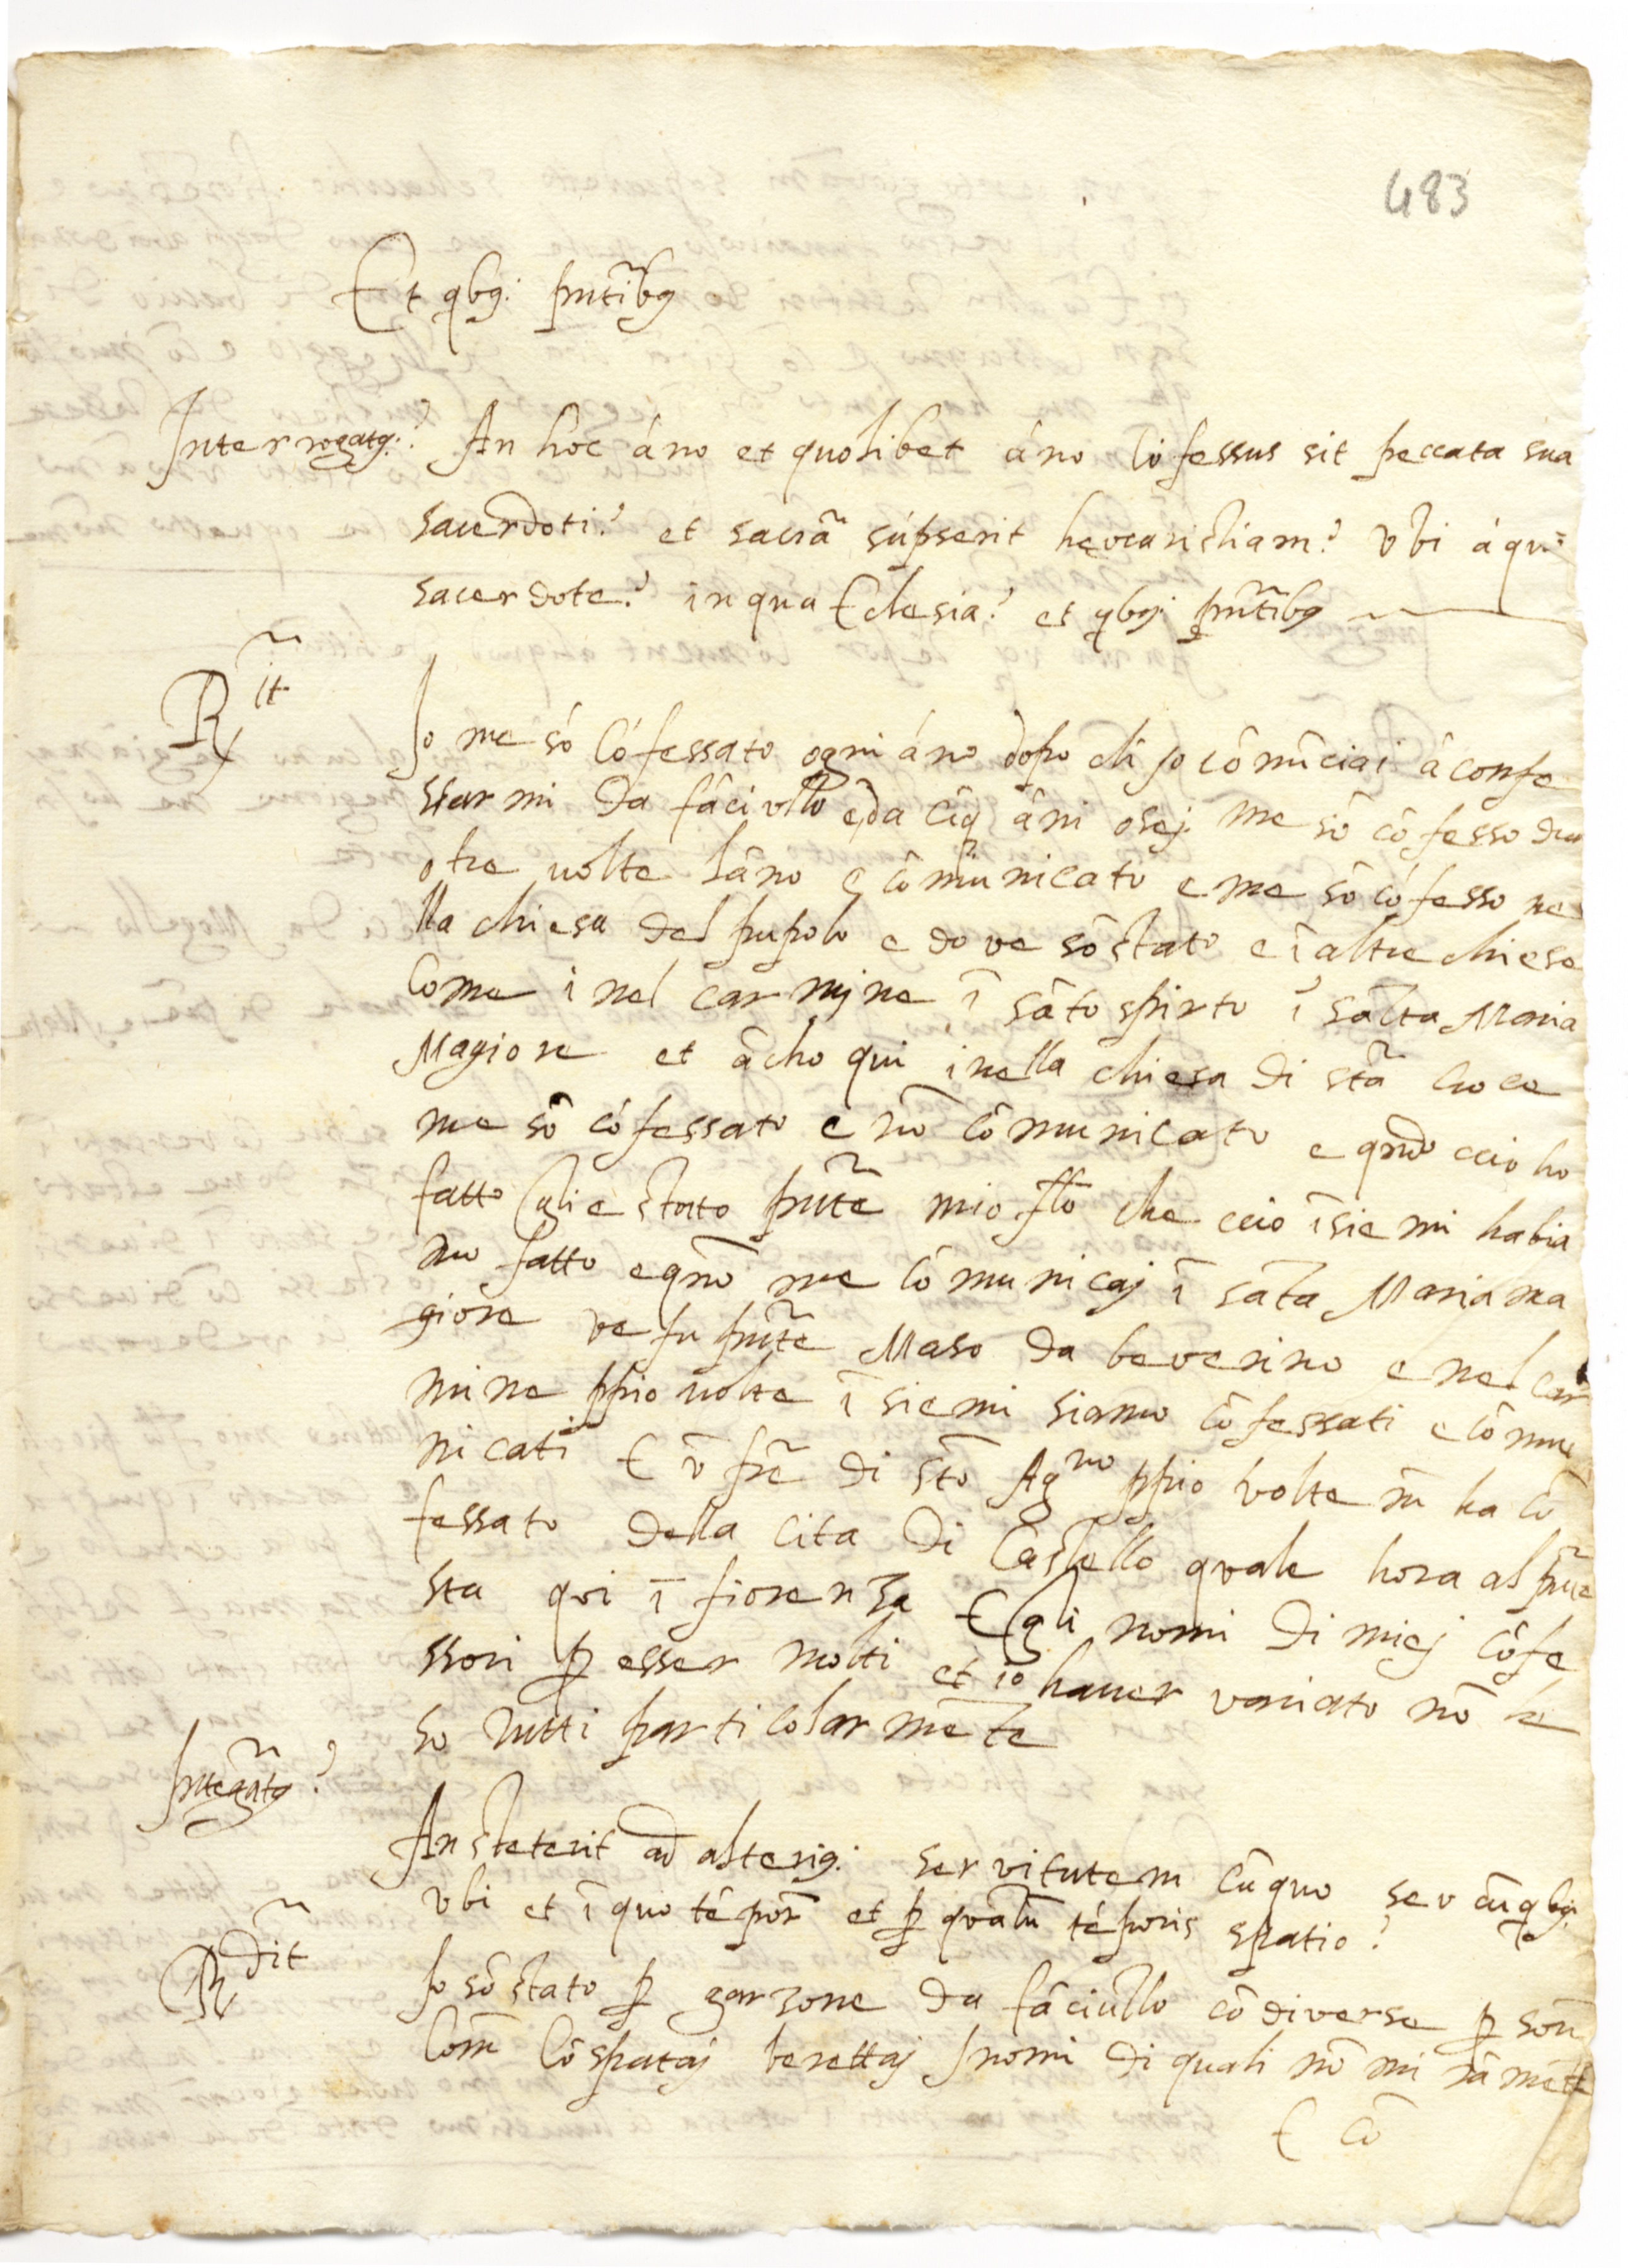 483
Et qbq. pñtibq
Interrogatq.? An hoc áno et quolibet áno cófessus sit peccata sua
sacerdoti? et sacrã súpserit heucaristiam? Ubi áquo
sacerdote? in qua Eclesia? et qbq. pñtibq
Rit Io me só cófessato ogni áno dopo ch io cômĩciai â confe
ssar mi Da fâciullo e da cîq âni o sej me sô côfesso due
o tre volte lâno e cômunicato e me sô cófesso ne
lla chiesa del pupolo e dove sô stato e ĩ altre chiese
Come i nel carmine ĩ sâto spirto ĩ sâtta Maria
Magiore et âcho qui i nella chiesa di stã croce
me sô cófessato e nõ cômunicato e qñdo ccio ho
fatto gli e stato pñte mio fllo che ccio ĩsiemi habia
mo fatto e qñdo me cômunicaj ĩ sâta Maria ma
giore ve fu pñte Maso da beverino e nel car
mine ppio volte ĩ siemi siamo côfessati e cômu
nicati E ũ frẽ di stõ Agno ppio volte m ha cõ
fessato della cita di Castello quale hora al pñte
sta qui ĩ fiorenza E gli nomi di miej côfe
ssori p esser molti et io haver variato nõ le
so tutti particolarmẽte
Interrogatq? An steterit ad alteriq. servitutem cũ quo seu cũ qbq.
ubi et ĩ quo tépore et p quâtũ téporis spatio?
Rdit Io sô stato p garzone da fâciullo cô diverse p sone
Come Cô spataj berettaj I nomi di quali nô mi râmẽte
E Cõ